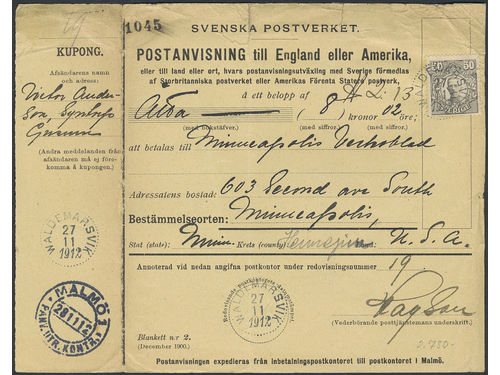 1045
SVENSKA POSTVERKET.
KUPONG.
Afsändarens namn
och adress:
Victor Ander-
son,
Gusum
(Andra meddelanden från
afsändaren må ej före-
komma å kupongen.)
WALDEMARSVIK
27
11
1912
MALMÖ 1
28.11.12
PANV. UTR. KONTR.
POSTANVISNING till England eller Amerika,
eller till land eller ort, hvars postanvisningsutväxling med Sverige förmedlas
af Storbritanniska postverket eller Amerikas Förenta Staters postverk,
å ett belopp af $ 2:13
Åtta (8) kronor 02 öre;
(med bokstäfver.) (med siffror.) (med siffror.)
att betalas till Minneapolis Veckoblad
Adressatens bostad: 603 Second ave South
Bestämmelseorten: Minneapolis,
Stat (state): Minn. Krets (county) Hennepin U. S. A.
Annoterad vid nedan angifna postkontor under redovisningsnummer 19.
Redovisande postkontorets datumstämpel
WALDEMARSVIK
27
11
1912
(Vederbörande posttjänstemans underskrift.)
Blankett nr 2.
(December 1900.)
2.750-
Postanvisningen expedieras från inbetalningspostkontoret till postkontoret i Malmö.
50 50
SVERIGE